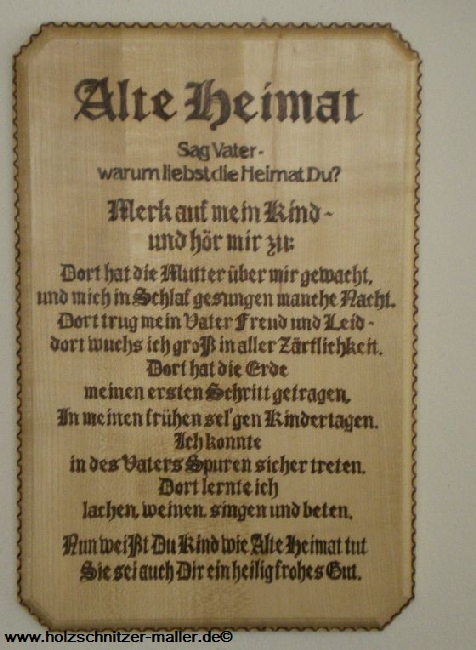 Alte Heimat
Sag Vater-
warum liebst die Heimat Du?
Merk auf mein Kind-
und hör mir zu:
Dort hat die Mutter über mir gewacht,
und mich in Schlaf gesungen manche Nacht.
Dort trug mein Vater Freud und Leid-
dort wuchs ich groß in aller Zärtlichkeit.
Dort hat die Erde
meinen ersten Schritt getragen,
In meinen frühen sel'gen Kindertagen.
Ich konnte
in des Vaters Spuren sicher treten.
Dort lernte ich
lachen, weinen, singen und beten.
Nun weißt Du Kind wie Alte Heimat tut
Sie sei auch Dir ein heilig frohes Gut.
www.holzschnitzer-maller.de©